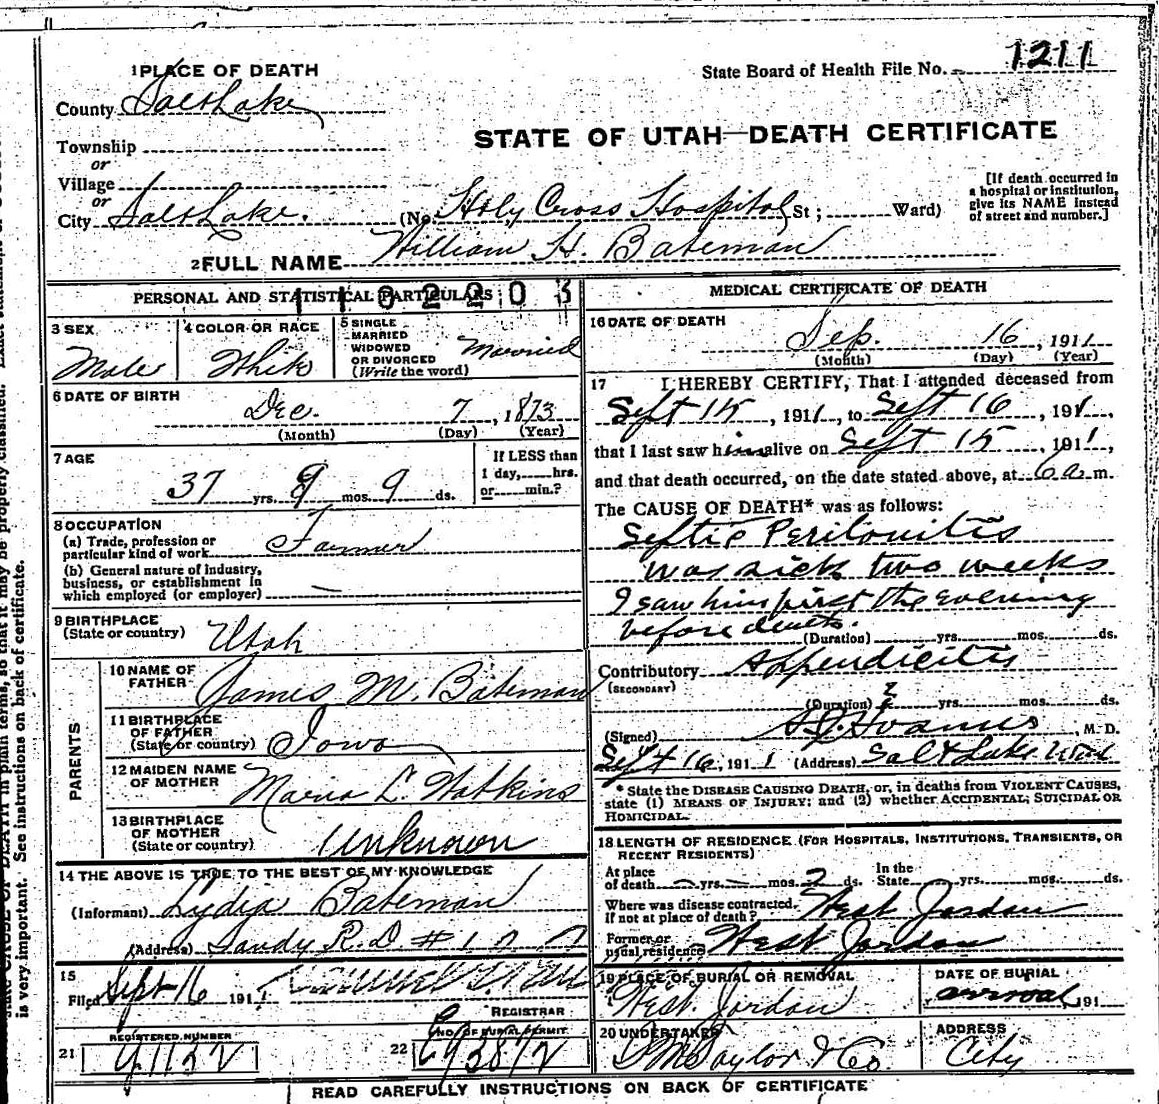 1211
1 PLACE OF DEATH
State Board of Health File No.
County Salt Lake
STATE OF UTAH—DEATH CERTIFICATE
Township
or
Village
or
City Salt Lake. (No. Holy Cross Hospital St; Ward)
[If death occurred in
a hospital or institution,
give its NAME instead
of street and number.]
2 FULL NAME William H. Bateman
PERSONAL AND STATISTICAL PARTICULARS
1102203
3 SEX
Male
4 COLOR OR RACE
White
5 SINGLE
MARRIED
WIDOWED
OR DIVORCED
(Write the word)
Married
6 DATE OF BIRTH
Dec. 7, 1873
(Month) (Day) (Year)
7 AGE
37 yrs. 9 mos. 9 ds.
If LESS than
1 day, hrs.
or min.?
8 OCCUPATION
(a) Trade, profession or
particular kind of work Farmer
(b) General nature of industry,
business, or establishment in
which employed (or employer) —
9 BIRTHPLACE
(State or country) Utah
PARENTS
10 NAME OF
FATHER James M. Bateman
11 BIRTHPLACE
OF FATHER
(State or country) Iowa
12 MAIDEN NAME
OF MOTHER Maria L. Watkins
13 BIRTHPLACE
OF MOTHER
(State or country) Unknown
14 THE ABOVE IS TRUE TO THE BEST OF MY KNOWLEDGE
(Informant) Lydia Bateman
(Address) Sandy R.D. #1
15
Filed Sept 16 1911
REGISTRAR
REGISTERED NUMBER
21
22
NO. OF BURIAL PERMIT
MEDICAL CERTIFICATE OF DEATH
16 DATE OF DEATH
Sep. 16, 1911
(Month) (Day) (Year)
17 I HEREBY CERTIFY, That I attended deceased from
Sept 15, 1911, to Sept 16, 1911,
that I last saw him alive on Sept 15, 1911,
and that death occurred, on the date stated above, at 6 a.m.
The CAUSE OF DEATH* was as follows:
Septic Peritonitis
was sick two weeks
I saw him first the evening
before death.
(Duration) yrs. mos. ds.
Contributory Appendicitis
(SECONDARY)
(Duration) yrs. mos. ds.
(Signed) M.D.
Sept 16, 1911 (Address) Salt Lake Utah
* State the DISEASE CAUSING DEATH, or, in deaths from VIOLENT CAUSES,
state (1) MEANS OF INJURY; and (2) whether ACCIDENTAL, SUICIDAL OR
HOMICIDAL.
18 LENGTH OF RESIDENCE (FOR HOSPITALS, INSTITUTIONS, TRANSIENTS, OR
RECENT RESIDENTS)
At place
of death — yrs. — mos. 2 ds.
In the
State yrs. mos. ds.
Where was disease contracted,
If not at place of death? West Jordan
Former or
usual residence West Jordan
19 PLACE OF BURIAL OR REMOVAL
West Jordan
DATE OF BURIAL
arrival 191
20 UNDERTAKER
S M Taylor & Co.
ADDRESS
City
READ CAREFULLY INSTRUCTIONS ON BACK OF CERTIFICATE
so that it may be properly classified.
is very important. See instructions on back of certificate.